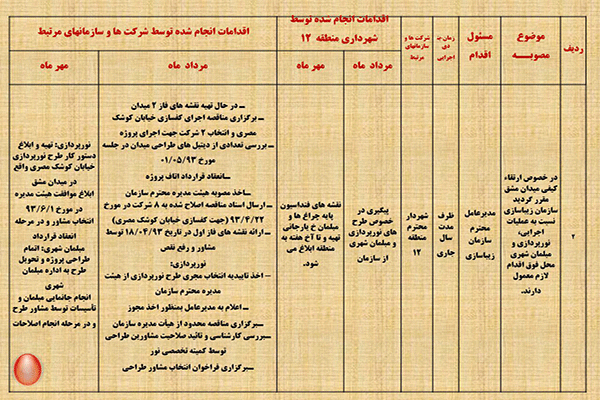 ردیف
موضوع
مصوبـــه
مسئول
اقدام
زمان بندی
اجرایی
شرکت ها و
سازمانهای
مرتبط
اقدامات انجام شده توسط
شهرداری منطقه ۱۲
اقدامات انجام شده توسط شرکت ها و سازمانهای مرتبط
مرداد ماه
مهر ماه
مرداد ماه
مهر ماه
۲
در خصوص ارتقاء
کیفی میدان مشق
مقرر گردید
سازمان زیباسازی
نسبت به عملیات
اجرایی،
نورپردازی و
مبلمان شهری
محل فوق اقدام
لازم معمول
دارند.
مدیرعامل
محترم
سازمان
زیباسازی
ظرف
مدت
سال
جاری
شهردار
محترم
منطقه
۱۲
پیگیری در
خصوص طرح
های نورپردازی
و مبلمان شهری
از سازمان
نقشه های فنداسیون
پایه چراغ ها و
مبلمان خ بارجانی
تهیه و تا آخ هفته به
منطقه ابلاغ می
شود.
ــ در حال تهیه نقشه های فاز ۲ میدان
ــ برگزاری مناقصه اجرای کفسازی خیابان کوشک
مصری و انتخاب ۲ شرکت جهت اجرای پروژه
ــ بررسی تعدادی از دیتیل های طراحی میدان در جلسه
مورخ ۰۱/۰۵/۹۳
ــانعقاد قرارداد اتاف پروژه
ــاخذ مصوبه هیئت مدیره محترم سازمان
ــ ارسال اسناد مناقصه اصلاح شده به ۸ شرکت در مورخ
۹۳/۴/۲۲ (جهت کفسازی خیابان کوشک مصری)
ــ ارائه نقشه های فاز اول در تاریخ ۱۸/۰۴/۹۳ توسط
مشاور و رفع نقص
نورپردازی:
ــ اخذ تاییدیه انتخاب مجری طرح نورپردازی از هیئت
مدیره محترم سازمان
ــ اعلام به مدیرعامل بمنظور اخذ مجوز
ــبرگزاری مناقصه محدود از هیأت مدیره سازمان
ــبررسی کارشناسی و تائید صلاحیت مشاورین طراحی
توسط کمیته تخصصی نور
ــبرگزاری فراخوان انتخاب مشاور طراحی
نورپردازی: تهیه و ابلاغ
دستور کار طرح نورپردازی
خیابان کوشک مصری واقع
در میدان مشق
ابلاغ موافقت هیئت مدیره
در مورخ ۹۳/۶/۱
انتخاب مشاور و در مرحله
انعقاد قرارداد
مبلمان شهری: اتمام
طراحی پروژه و تحویل
طرح به اداره مبلمان
شهری
انجام جانمایی مبلمان و
تأسیسات توسط مشاور طرح
و در مرحله انجام اصلاحات